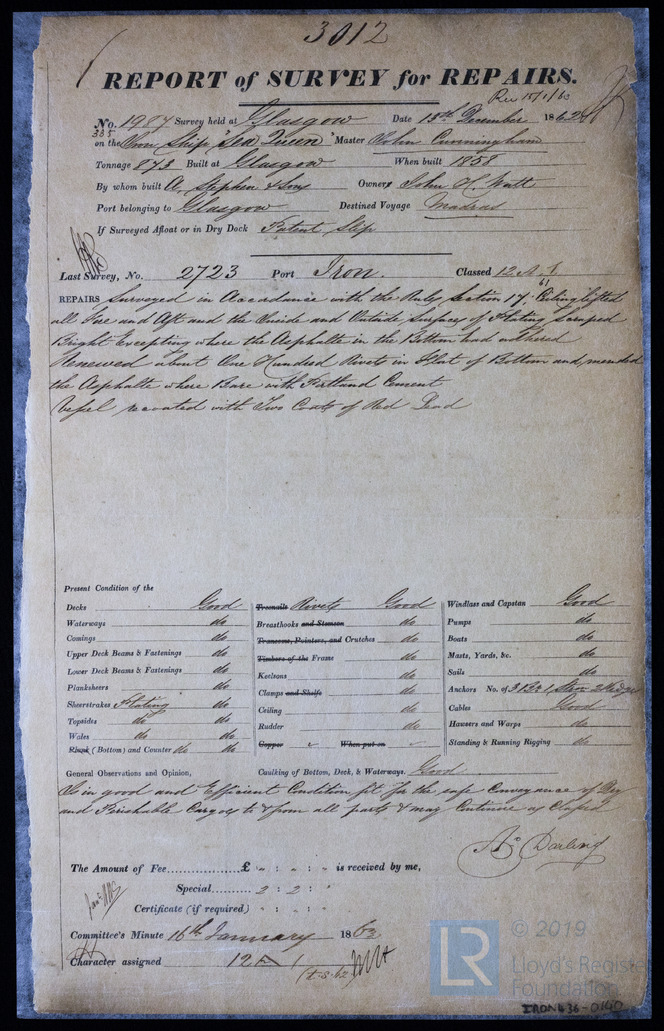 3012
REPORT of SURVEY for REPAIRS.
Rec 15/1/63
No. 1987 Survey held at Glasgow Date 13th December 1862
385
on the Iron Ship "Sea Queen" Master John Cunningham
Tonnage 873 Built at Glasgow When built 1858
By whom built A. Stephen & Sons Owner John H. Watt
Port belonging to Glasgow Destined Voyage Madras
If Surveyed Afloat or in Dry Dock Patent Slip
Last Survey, No. 2723 Port Iron. Classed 12 A 1
61
REPAIRS Surveyed in Accordance with the Rules, Section 17. Ceiling lifted
all Fore and Aft and the Inside and Outside Surfaces of Plating Scraped
Bright Excepting where the Asphalte in the Bottom had adhered
Renewed about One Hundred Rivets in Flat of Bottom and mended
the Asphalte where Bare with Portland Cement
Vessel recoated with Two Coats of Red Lead
Present Condition of the
Decks Good
Waterways do
Comings do
Upper Deck Beams & Fastenings do
Lower Deck Beams & Fastenings do
Planksheers do
Sheerstrakes Plating do
Topsides do do
Wales do do
Plank (Bottom) and Counter do do
Treenails Rivets Good
Breasthooks and Stemson do
Transoms, Pointers, and Crutches do
Timbers of the Frame do
Keelsons do
Clamps and Shelfs do
Ceiling do
Rudder do
Copper When put on
Windlass and Capstan Good
Pumps do
Boats do
Masts, Yards, &c. do
Sails do
Anchors No. of 3 Br 1 Strm 2 Kedges
Cables Good
Hawsers and Warps do
Standing & Running Rigging do
General Observations and Opinion, Caulking of Bottom, Deck, & Waterways. Good
Is in good and Efficient Condition fit for the safe Conveyance of Dry
and Perishable Cargoes to & from all parts & may Continue as Classed
Darling
The Amount of Fee £ " : " : " is received by me,
Special 2 : 2 : "
Certificate (if required) " : " : "
Committee's Minute 16th January 1863
Character assigned 12 A 1
LR
© 2019
Lloyd's Register
Foundation
IRON436-0140